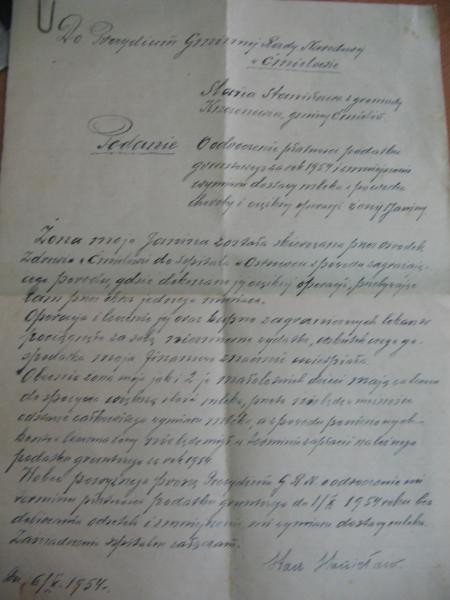 Do Prezydium Gminnej Rady Narodowej
w Ćmielowie
Stania Stanisława z gromady
gminy Ćmielów
Podanie O odroczenie płatności podatku
gruntowego za rok 1954 i zmniejszenie
wymiaru dostawy mleka z powodu
choroby i ciężkiej operacji żony Janiny
Żona moja Janina została skierowana przez Ośrodek
Zdrowia w Ćmielowie do szpitala w Ostrowcu z powodu zagrażają-
cego porodu, gdzie dokonano jej ciężkiej operacji, przebywając
tam przez okres jednego miesiąca.
Operacja i leczenie jej oraz kupno zagranicznych lekarstw
pociągnęło za sobą wydatki, wskutek czego go-
spodarka moja finansowo znacznie ucierpiała.
Obecnie żona moja jak i 2 je małoletnich dzieci mają zalecone
do spożycia większą ilość mleka, przeto nie będę w możności
odstawić całkowitego wymiaru mleka, a z powodu poniesionych
leczenia żony nie będę mógł w terminie zapłacić należnego
podatku gruntowego za rok 1954.
Wobec powyższego proszę Prezydium G.R.N. o odroczenie mi
terminu płatności podatku gruntowego do 1/X 1954 roku bez
doliczania odsetek i zmniejszenie mi wymiaru dostawy mleka.
Zaświadczenie szpitalne załączam.
dn. 6/V. 1954.